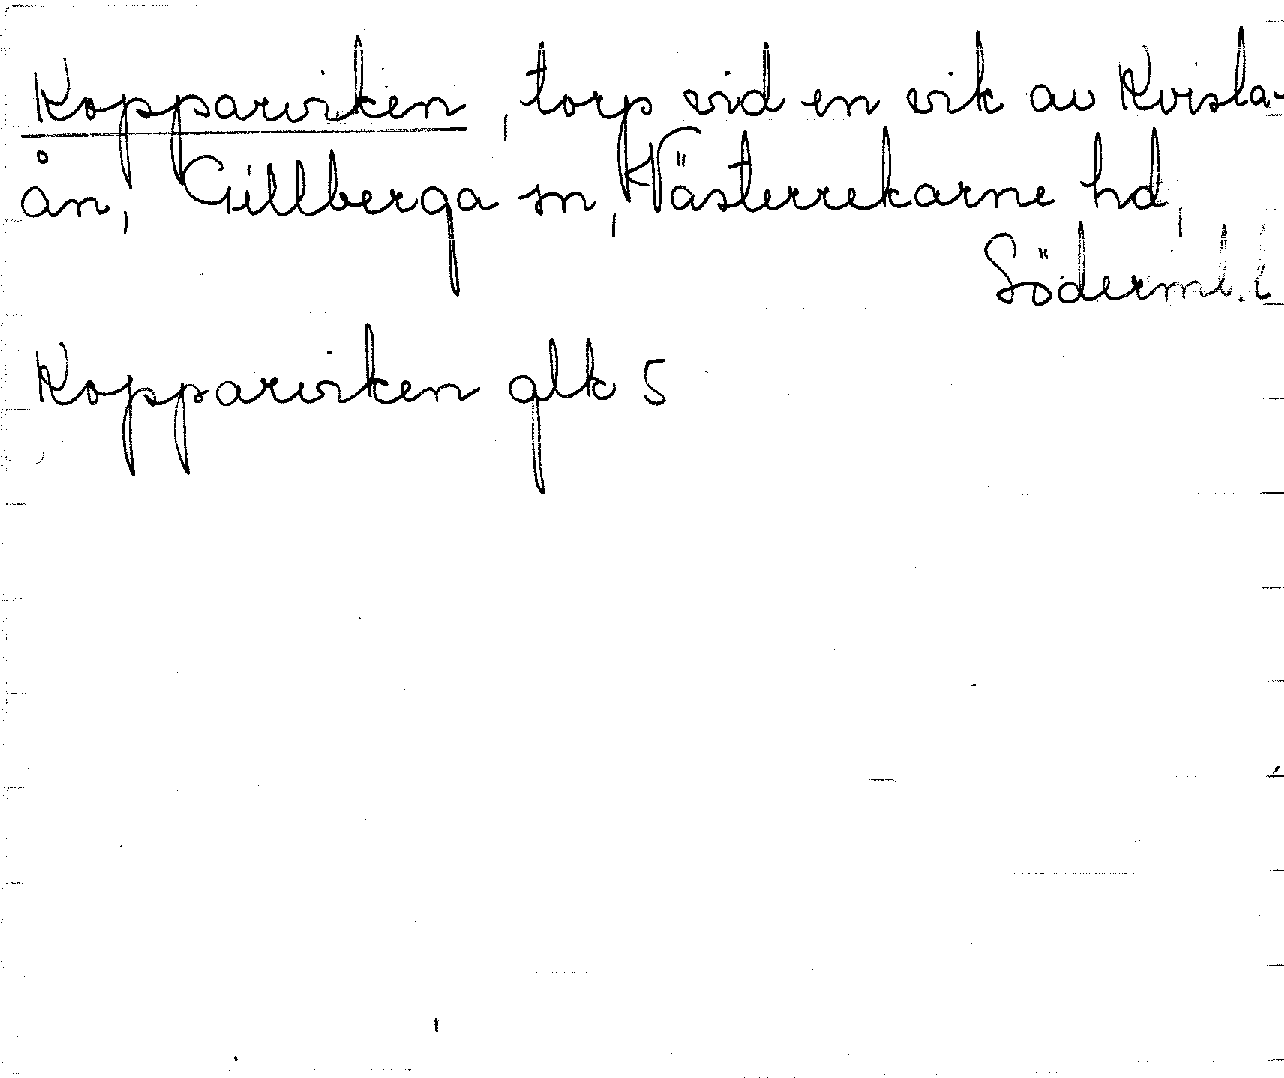 Kopparviken, torp vid en vik av Kvista-
ån, Gillberga sn, Västerrekarne hd,
Söderml. l
Kopparviken glk 5